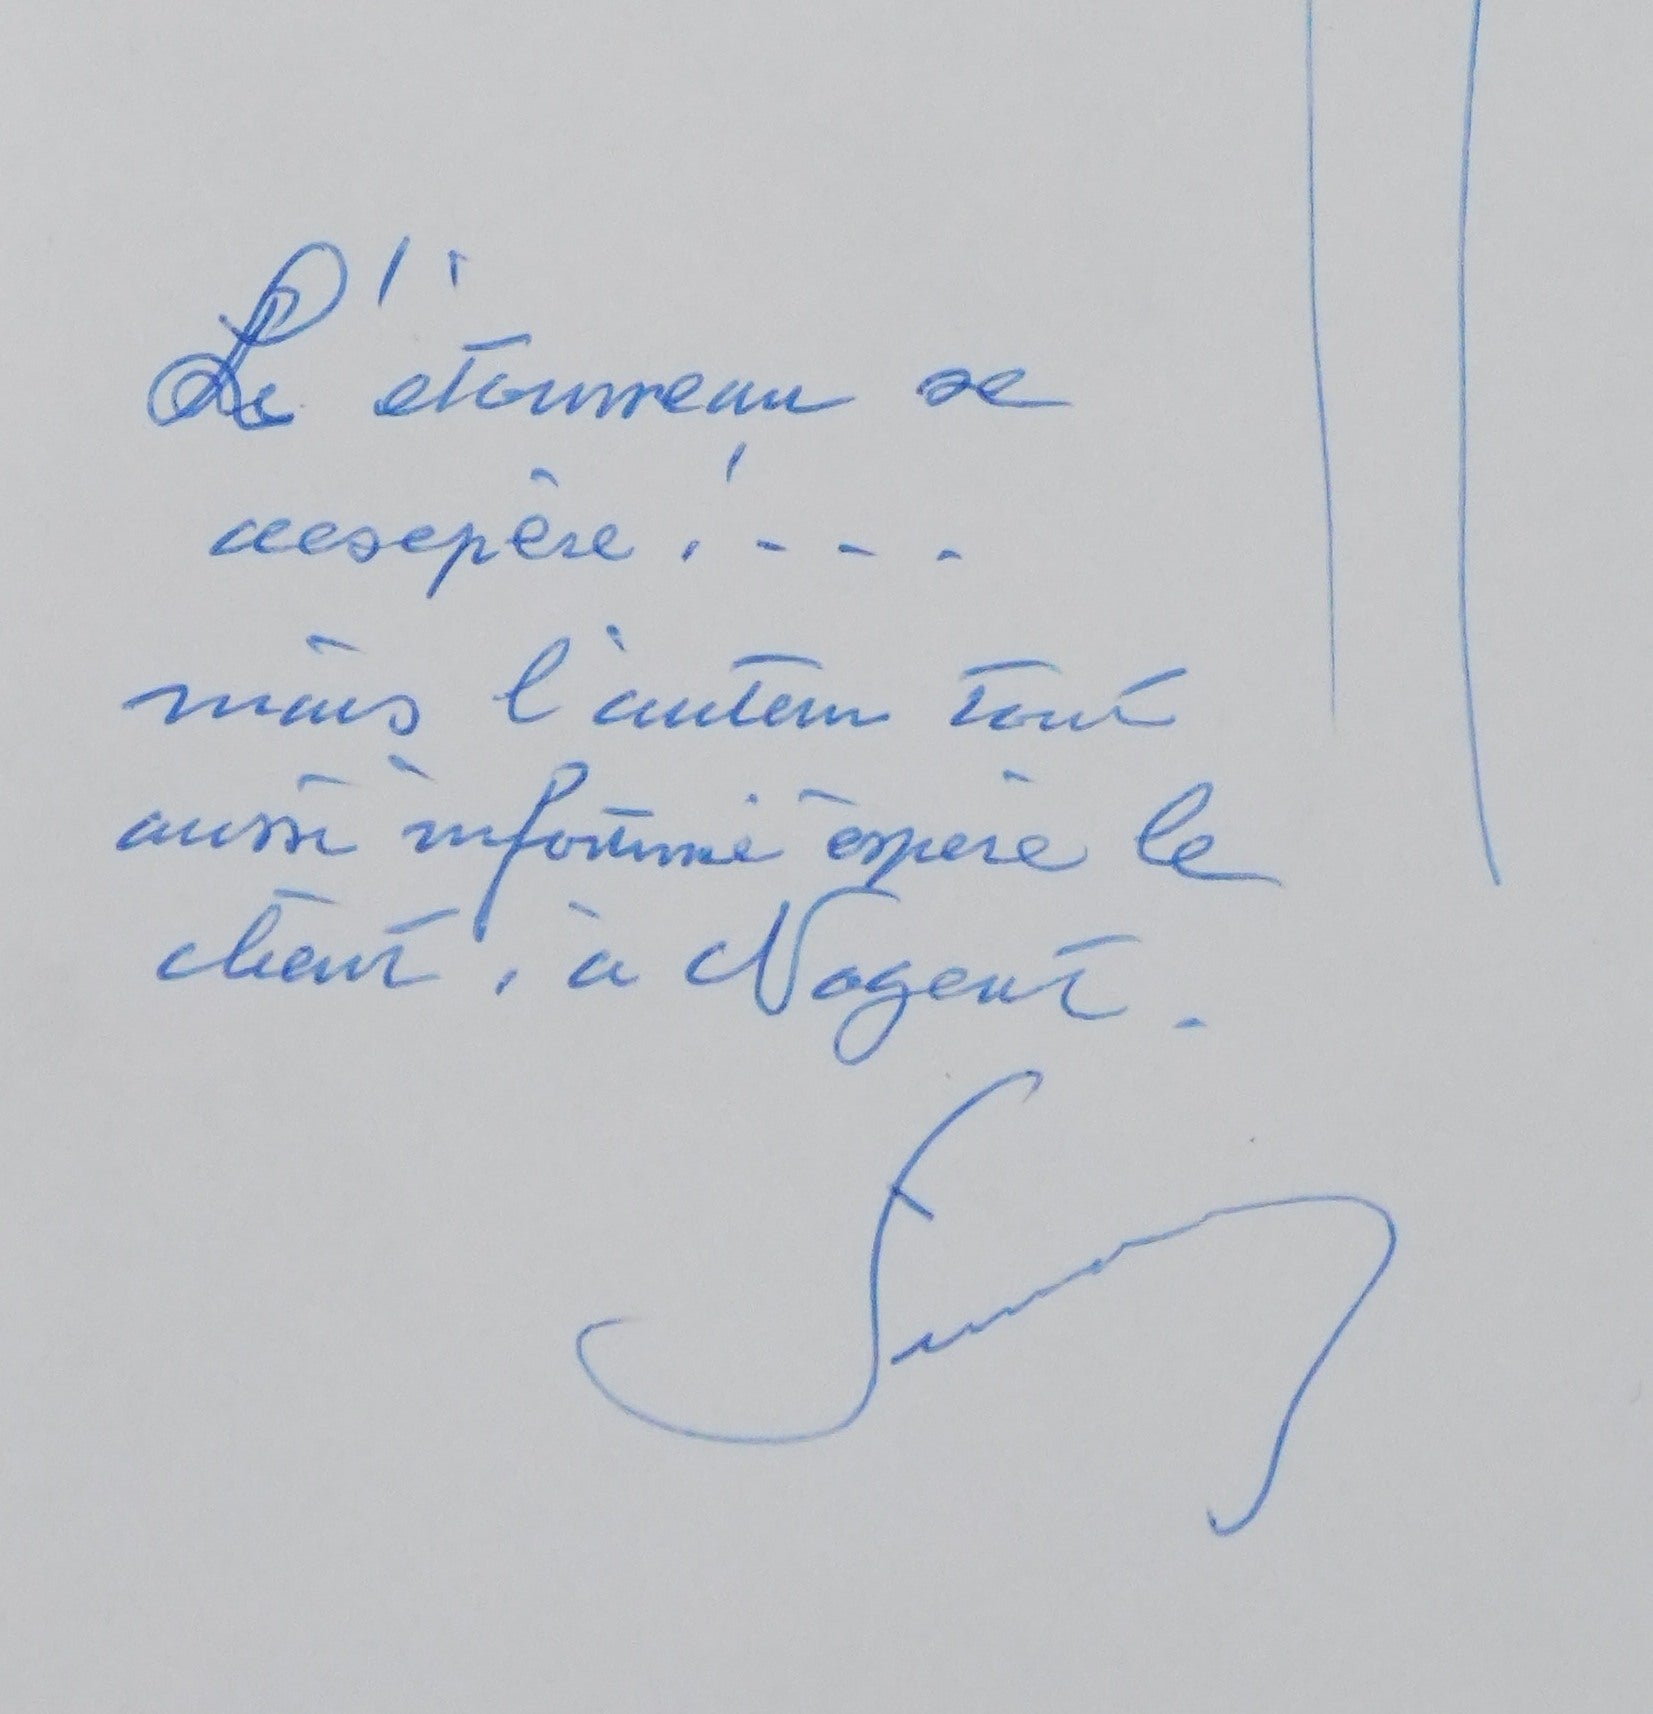 L'étourneau se
desepère !...
mais l'auteur tout
aussi infortuné espère le
client, à Nogent.